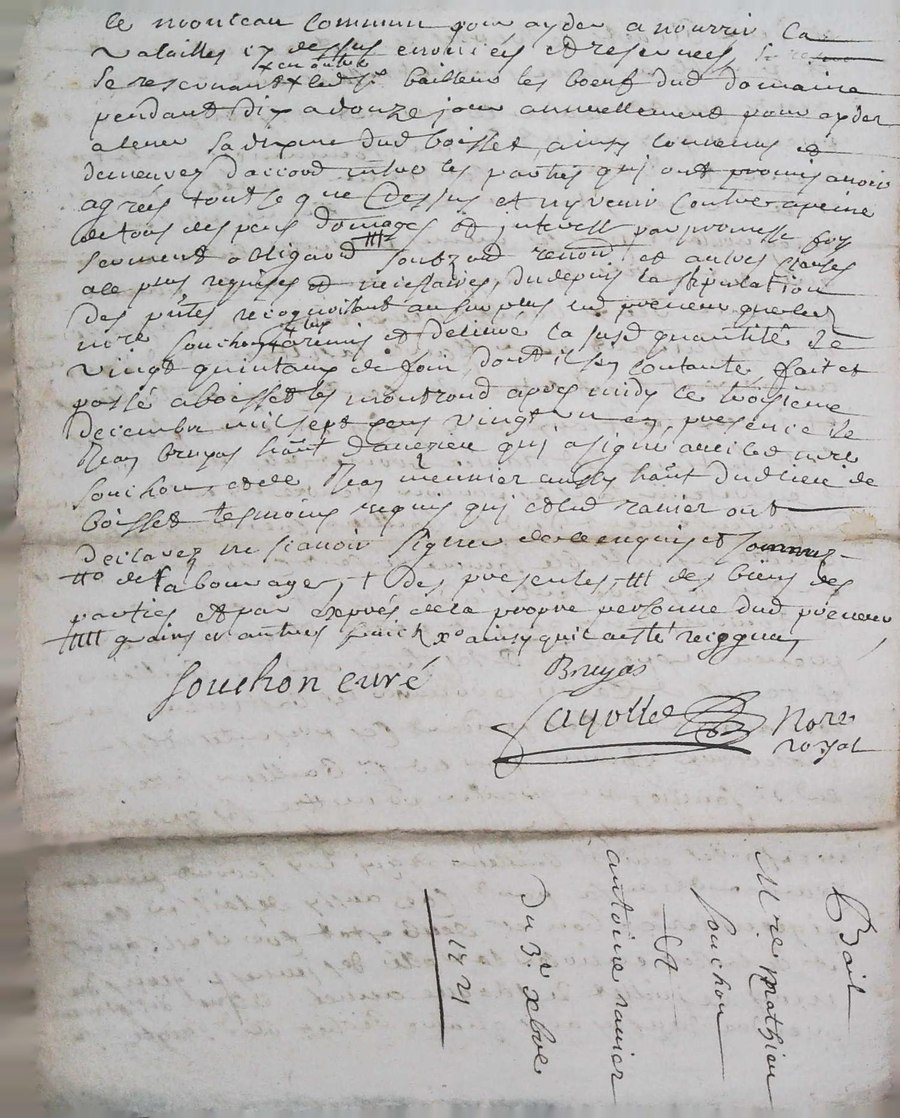 le monceau commun pour ayder a nourrir la
volailles cy dessus enoncées et reservées
+ en outre
se reservant + led sr. bailleur les boeuf dud domaine
pendant dix a douze jour annuellement pour ayder
a lever sa dixme dud boisset, ainsy convenus et
demeurez d'accord entre les parties qui ont promis avoir
agreé tout ce que dessus et n'y venir contre a peine
de tous despens domages et interest par promesse foy
serment obligaon ttt soubzon renonon et autres clauses
a ce plus requises et necessaires, du depuis la stipulation
des pntes recognoissant au surplus led preneur que led
mre souchon a remis et delivré la susd quantité de
vingt quintaux de foin dont il s'en contante, fait et
passé a boisset les montrond apres midy le troisieme
decembre mil sept cens vingt un en presence de
Jean bruyas hãnt d'aurieu qui a signé avec led mre
souchon, et de Jean meunier aussy hãnt dud lieu de
boisset tesmoins requis qui et led ranier ont
declarez ne scavoir signer de ce enquis et sommés
tto de labourage, + des presentes, ttt des biens des
parties et par exprés de la propre personne dud preneur,
tttt grains et autres fruick xo ainsy qu'il a esté recogneu,
Souchon curé
Bruyas
Fayolle Nore
royal
Bail
Mre Mathieu
Souchon
A
antoine ranier
Du 3e xbre
1721